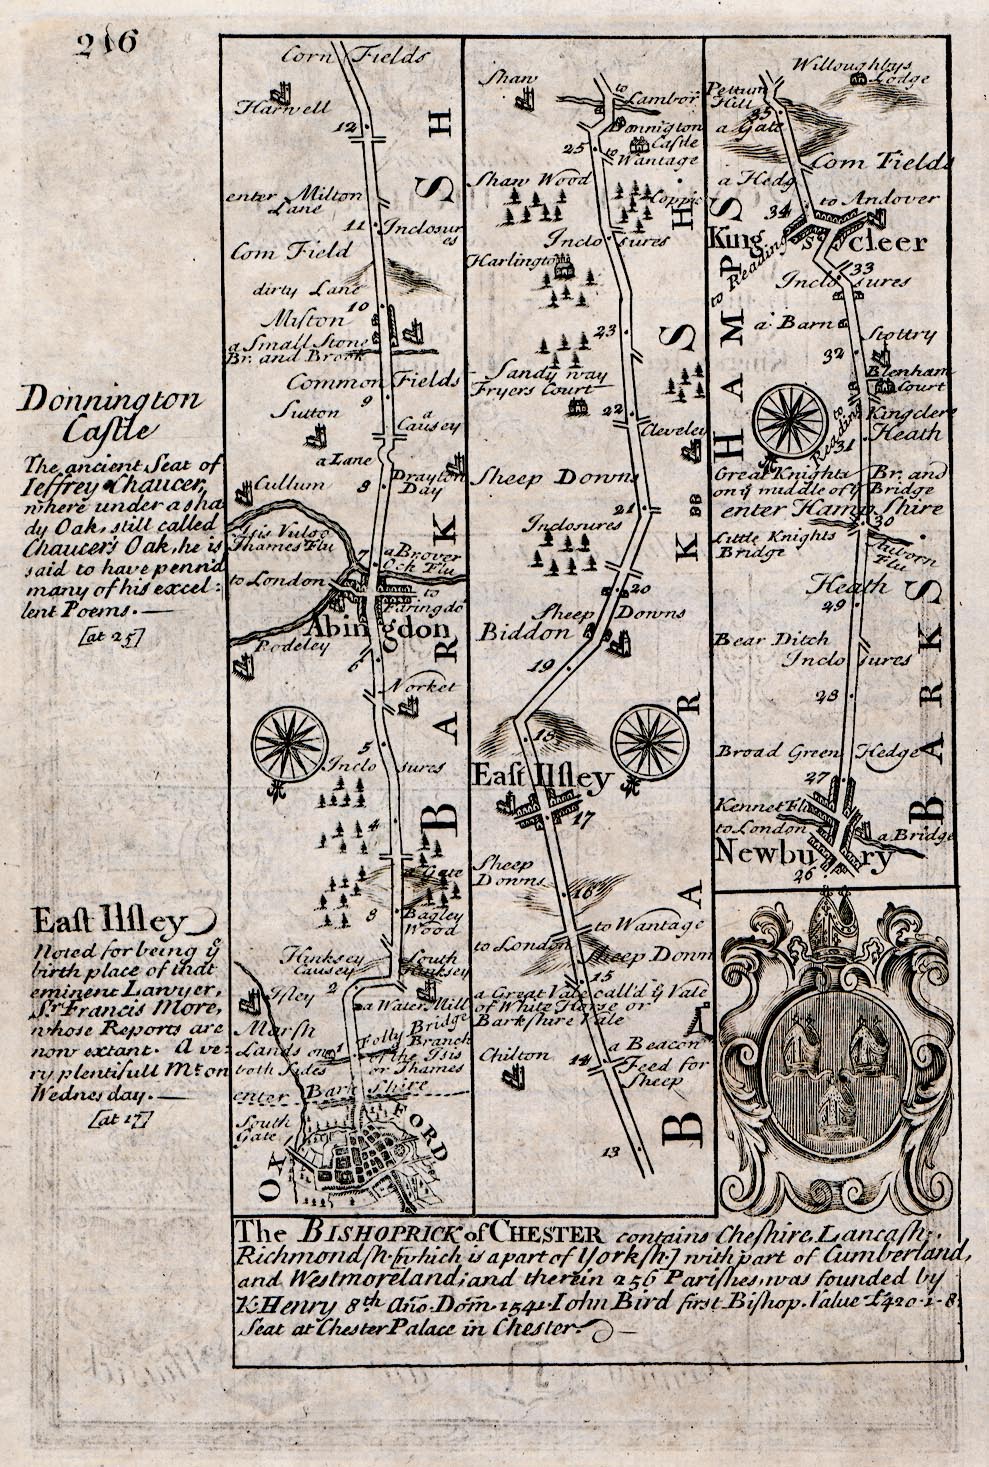 216
Donnington
Castle
The ancient Seat of
Ieffrey Chaucer,
where under a sha
dy Oak, still called
Chaucer's Oak, he is
said to have penn'd
many of his excel:
lent Poems.—
[at 25]
East Ilsley
Noted for being ẙ
birth place of that
eminent Lawyer,
Sr. Francis More,
whose Reports are
now extant. A ve:
ry plentifull Mt. on
Wednesday.—
[at 17]
Corn Fields
Harwell
12
enter Milton
Lane
11
Inclosur
es
Corn Field
dirty Lane
10
Milton
a Small Stone
Br. and Brook
Common Fields
9
Sutton
a
Causey
a Lane
Cullum
8
Drayton
Day
Isis Vulgo
Thames Flu
7
a Br over
Ock Flu
to London
to
Faringdo
Abingdon
Rodeley
6
Norket
5
Inclosures
4
a Gate
3
Bagley
Wood
Hinksey
Causey
South
Hinksey
Ifley
2
a Water Mill
Folly Bridge
Marsh
Lands on
both Sides
1
a Branch
of the Isis
or Thames
enter Bark Shire
South
Gate
OXFORD
BARKSH
Shaw
to
Lambor
Donnington
Castle
25
to
Wantage
Shaw Wood
Coppic
Inclosures
Harlington
23
Sandy way
Fryers Court
22
Cleveley
Sheep Downs
21
Inclosures
20
Sheep Downs
Biddon
19
18
East Ilsley
17
Sheep
Downs
16
to Wantage
to London
Sheep Down
15
a Great Vale call'd ẙ Vale
of White Horse or
Barkshire Vale
a Beacon
Chilton
14
Feed for
Sheep
13
BARKSH.
Willoughbys
Lodge
Pettum
Hill
35
a Gate
Corn Fields
a Hedg
34
to Andover
Kingscleer
to Reading
33
Inclosures
a Barn
Stottry
32
Blenham
Court
Kingclere
Heath
to
Reading
31
Great Knights Br. and
on ẙ middle of ẙ Bridge
enter Hamp Shire
30
Little Knights
Bridge
Auborn
Flu
Heath
29
Bear Ditch
Inclosures
28
Broad Green
Hedge
27
Kennet Flu
to London
a Bridge
Newbury
26
HAMPS
BARKS.
The BISHOPRICK of CHESTER contains Cheshire, Lancash.
Richmondsh. [which is a part of Yorksh.] with part of Cumberland,
and Westmoreland; and therein 256 Parishes, was founded by
K. Henry 8th. Año. Dom̃. 1541. Iohn Bird first Bishop. Value £420-1-8.
Seat at Chester Palace in Chester.—